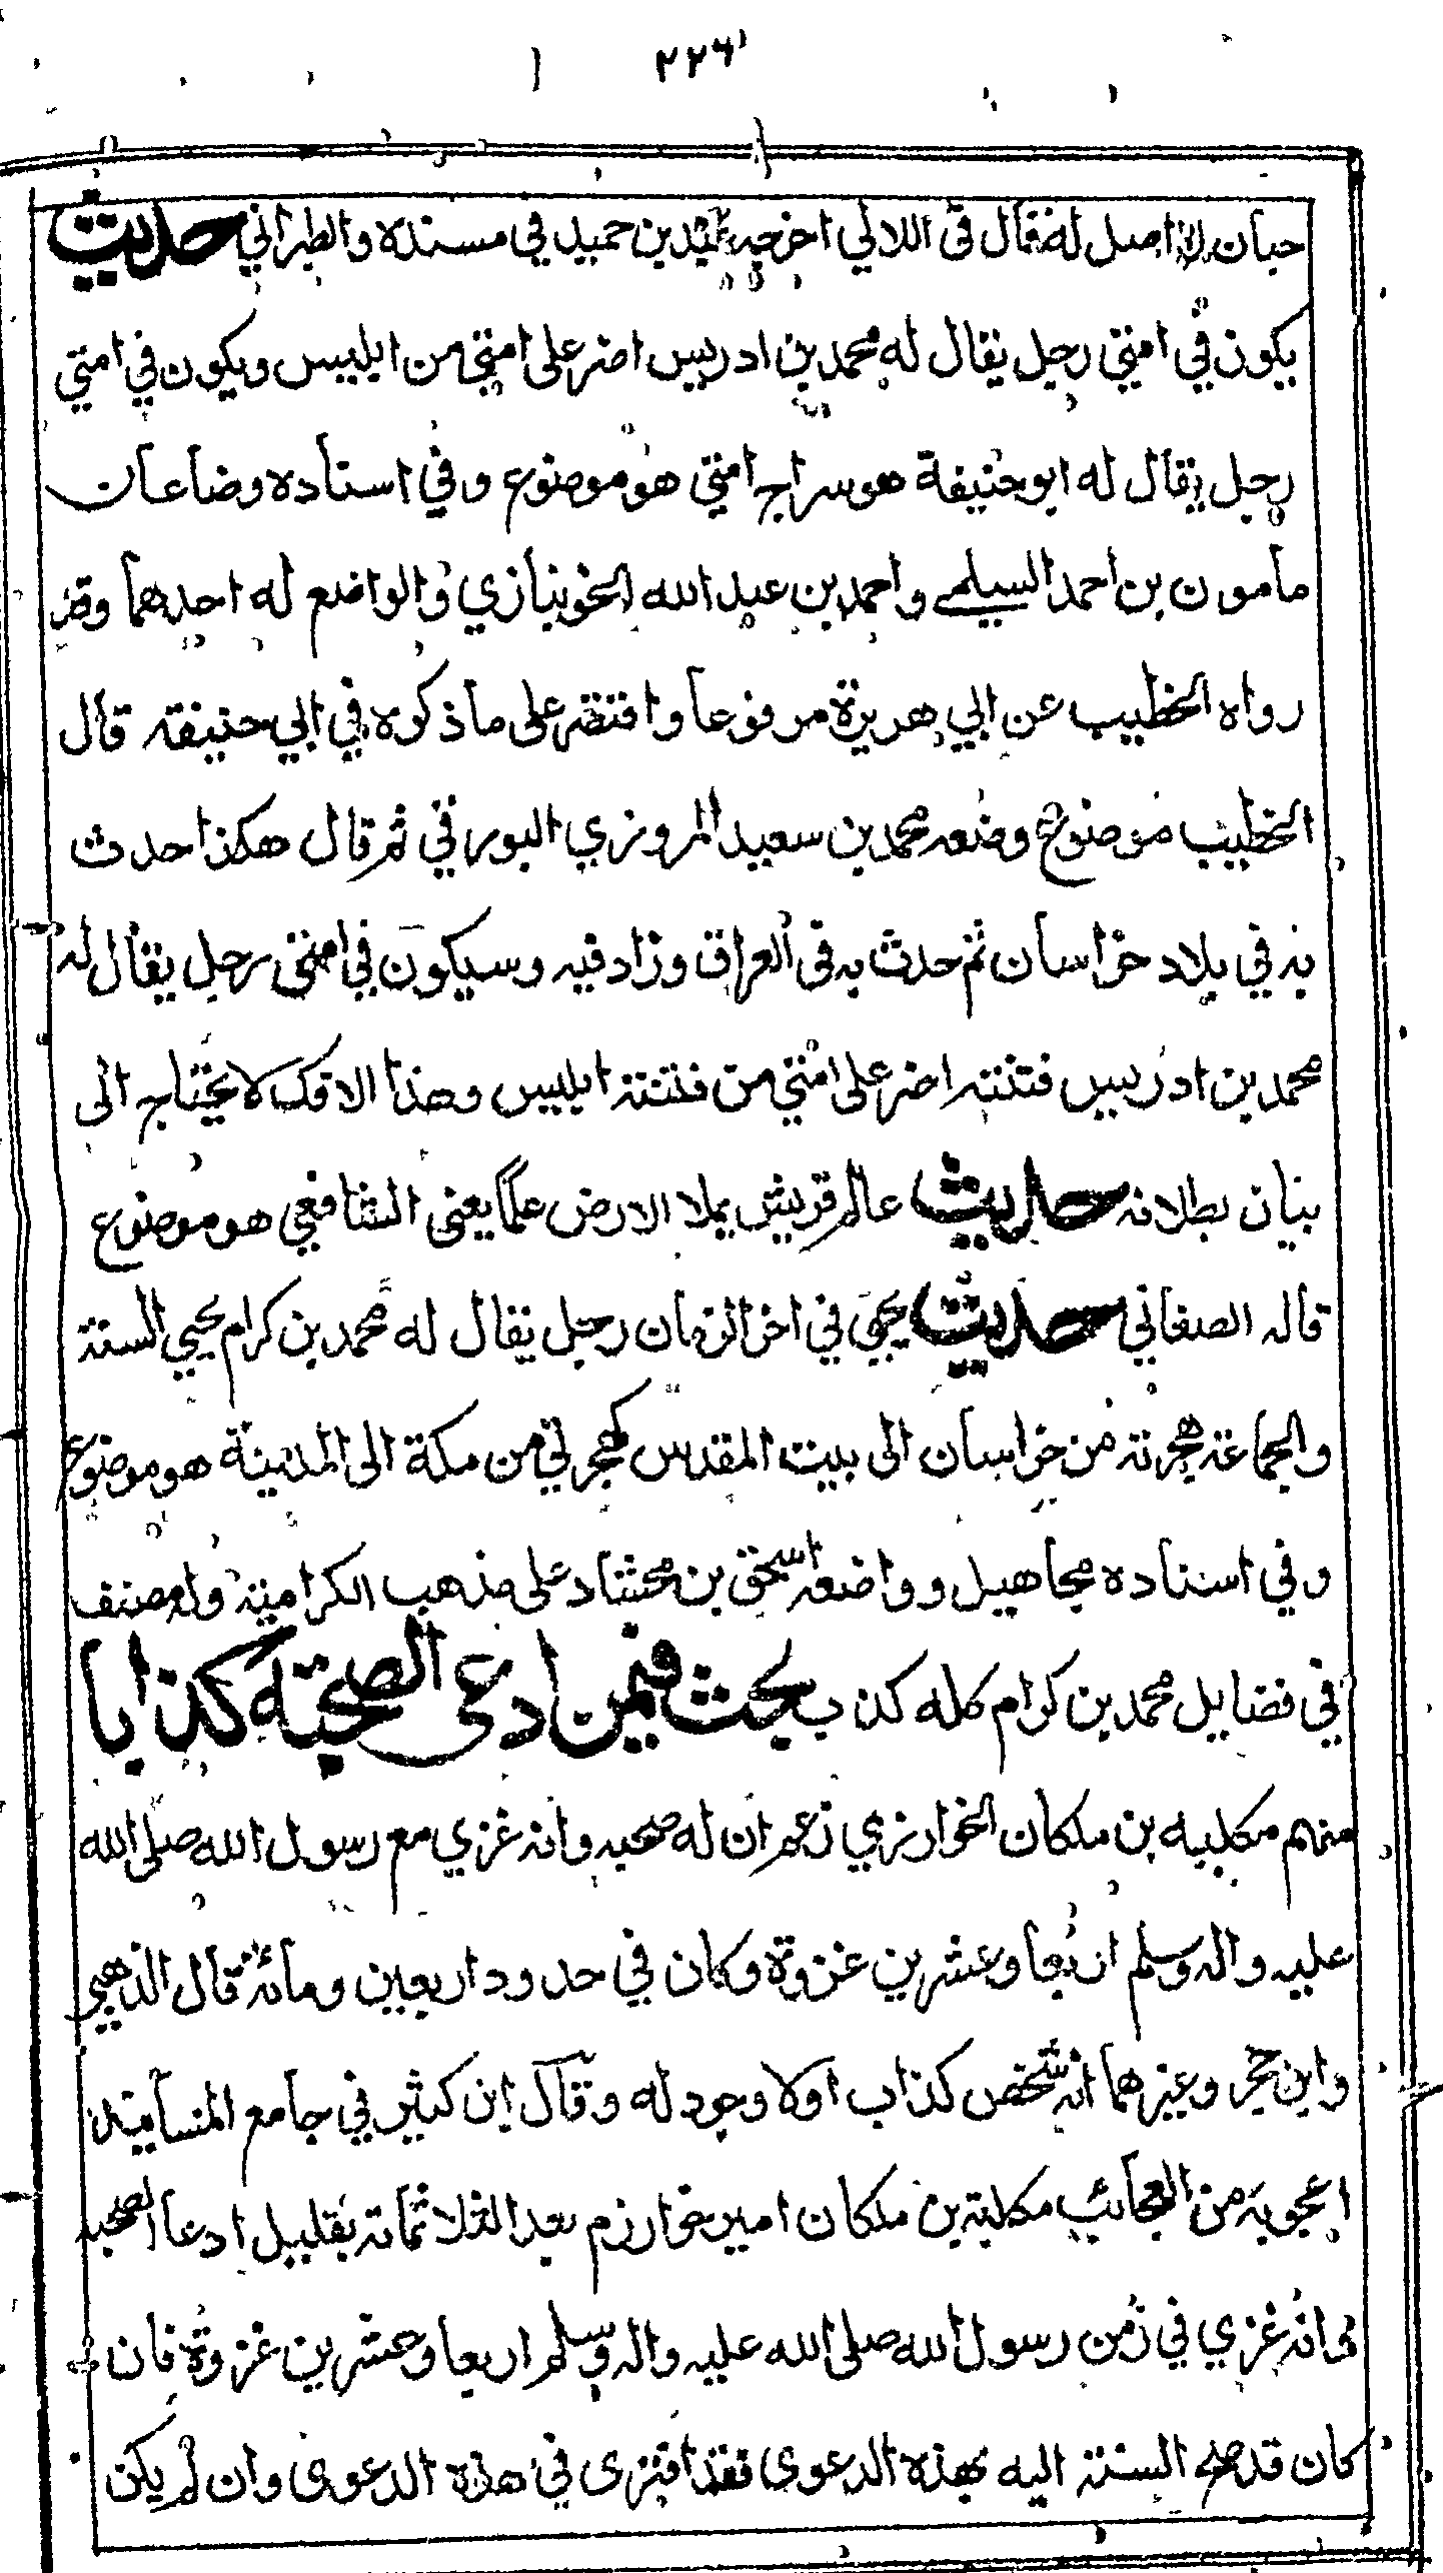 ٢٢٦
حبان لا اصل له فقال فى اللالي اخرجه عبد بن حميد في مسنده والطبراني حديث
يكون في امتي رجل يقال له محمد بن ادريس اضر على امتي من ابليس ويكون في امتي
رجل يقال له ابو حنيفة هو سراج امتي هو موضوع وفي اسناده وضاعان
مامون بن احمد السلمي واحمد بن عبد الله الخوبنازي والواضع له احدهما وقد
رواه الخطيب عن ابي هريرة مرفوعا واقتصر على ما ذكره في ابي حنيفه قال
الخطيب موضوع وضعه محمد بن سعيد المروزي البورقي ثم قال هكذا حدث
به في بلاد خراسان ثم حدث به فى العراق وزاد فيه وسيكون في امتي رجل يقال له
محمد بن ادريس فتنته اضر على امتي من فتنة ابليس وهذا الافك لا يحتاج الى
بيان بطلانه حديث عالم قريش يملا الارض علما يعنى الشافعي هو موضوع
قاله الصغاني حديث يجيء في اخر الزمان رجل يقال له محمد بن كرام يحيي السنة
والجماعة هجرته من خراسان الى بيت المقدس كهجرتي من مكة الى المدينة هو موضوع
وفي اسناده مجاهيل وواضعه اسحق بن محمشاد على مذهب الكرامية وله مصنف
في فضايل محمد بن كرام كله كذب بحث فيمن ادعى الصحبة كذابا
منهم مكلبه بن ملكان الخوارزمي زعم ان له صحبه وانه غزي مع رسول الله صلى الله
عليه واله وسلم اربعا وعشرين غزوة وكان في حدود اربعين ومائة قال الذهبي
وابن حجر وغيرهما انه شخص كذاب اولا وجود له وقال ابن كثير في جامع المسانيد
اعجوبة من العجائب مكلبة بن ملكان امير خوارزم بعد الثلاثمائة بقليل ادعا الصحبه
وانه غزي في زمن رسول الله صلى الله عليه واله وسلم اربعا وعشرين غزوة فان
كان قد صح السند اليه بهذه الدعوى فقد افترى في هذه الدعوى وان لم يكن